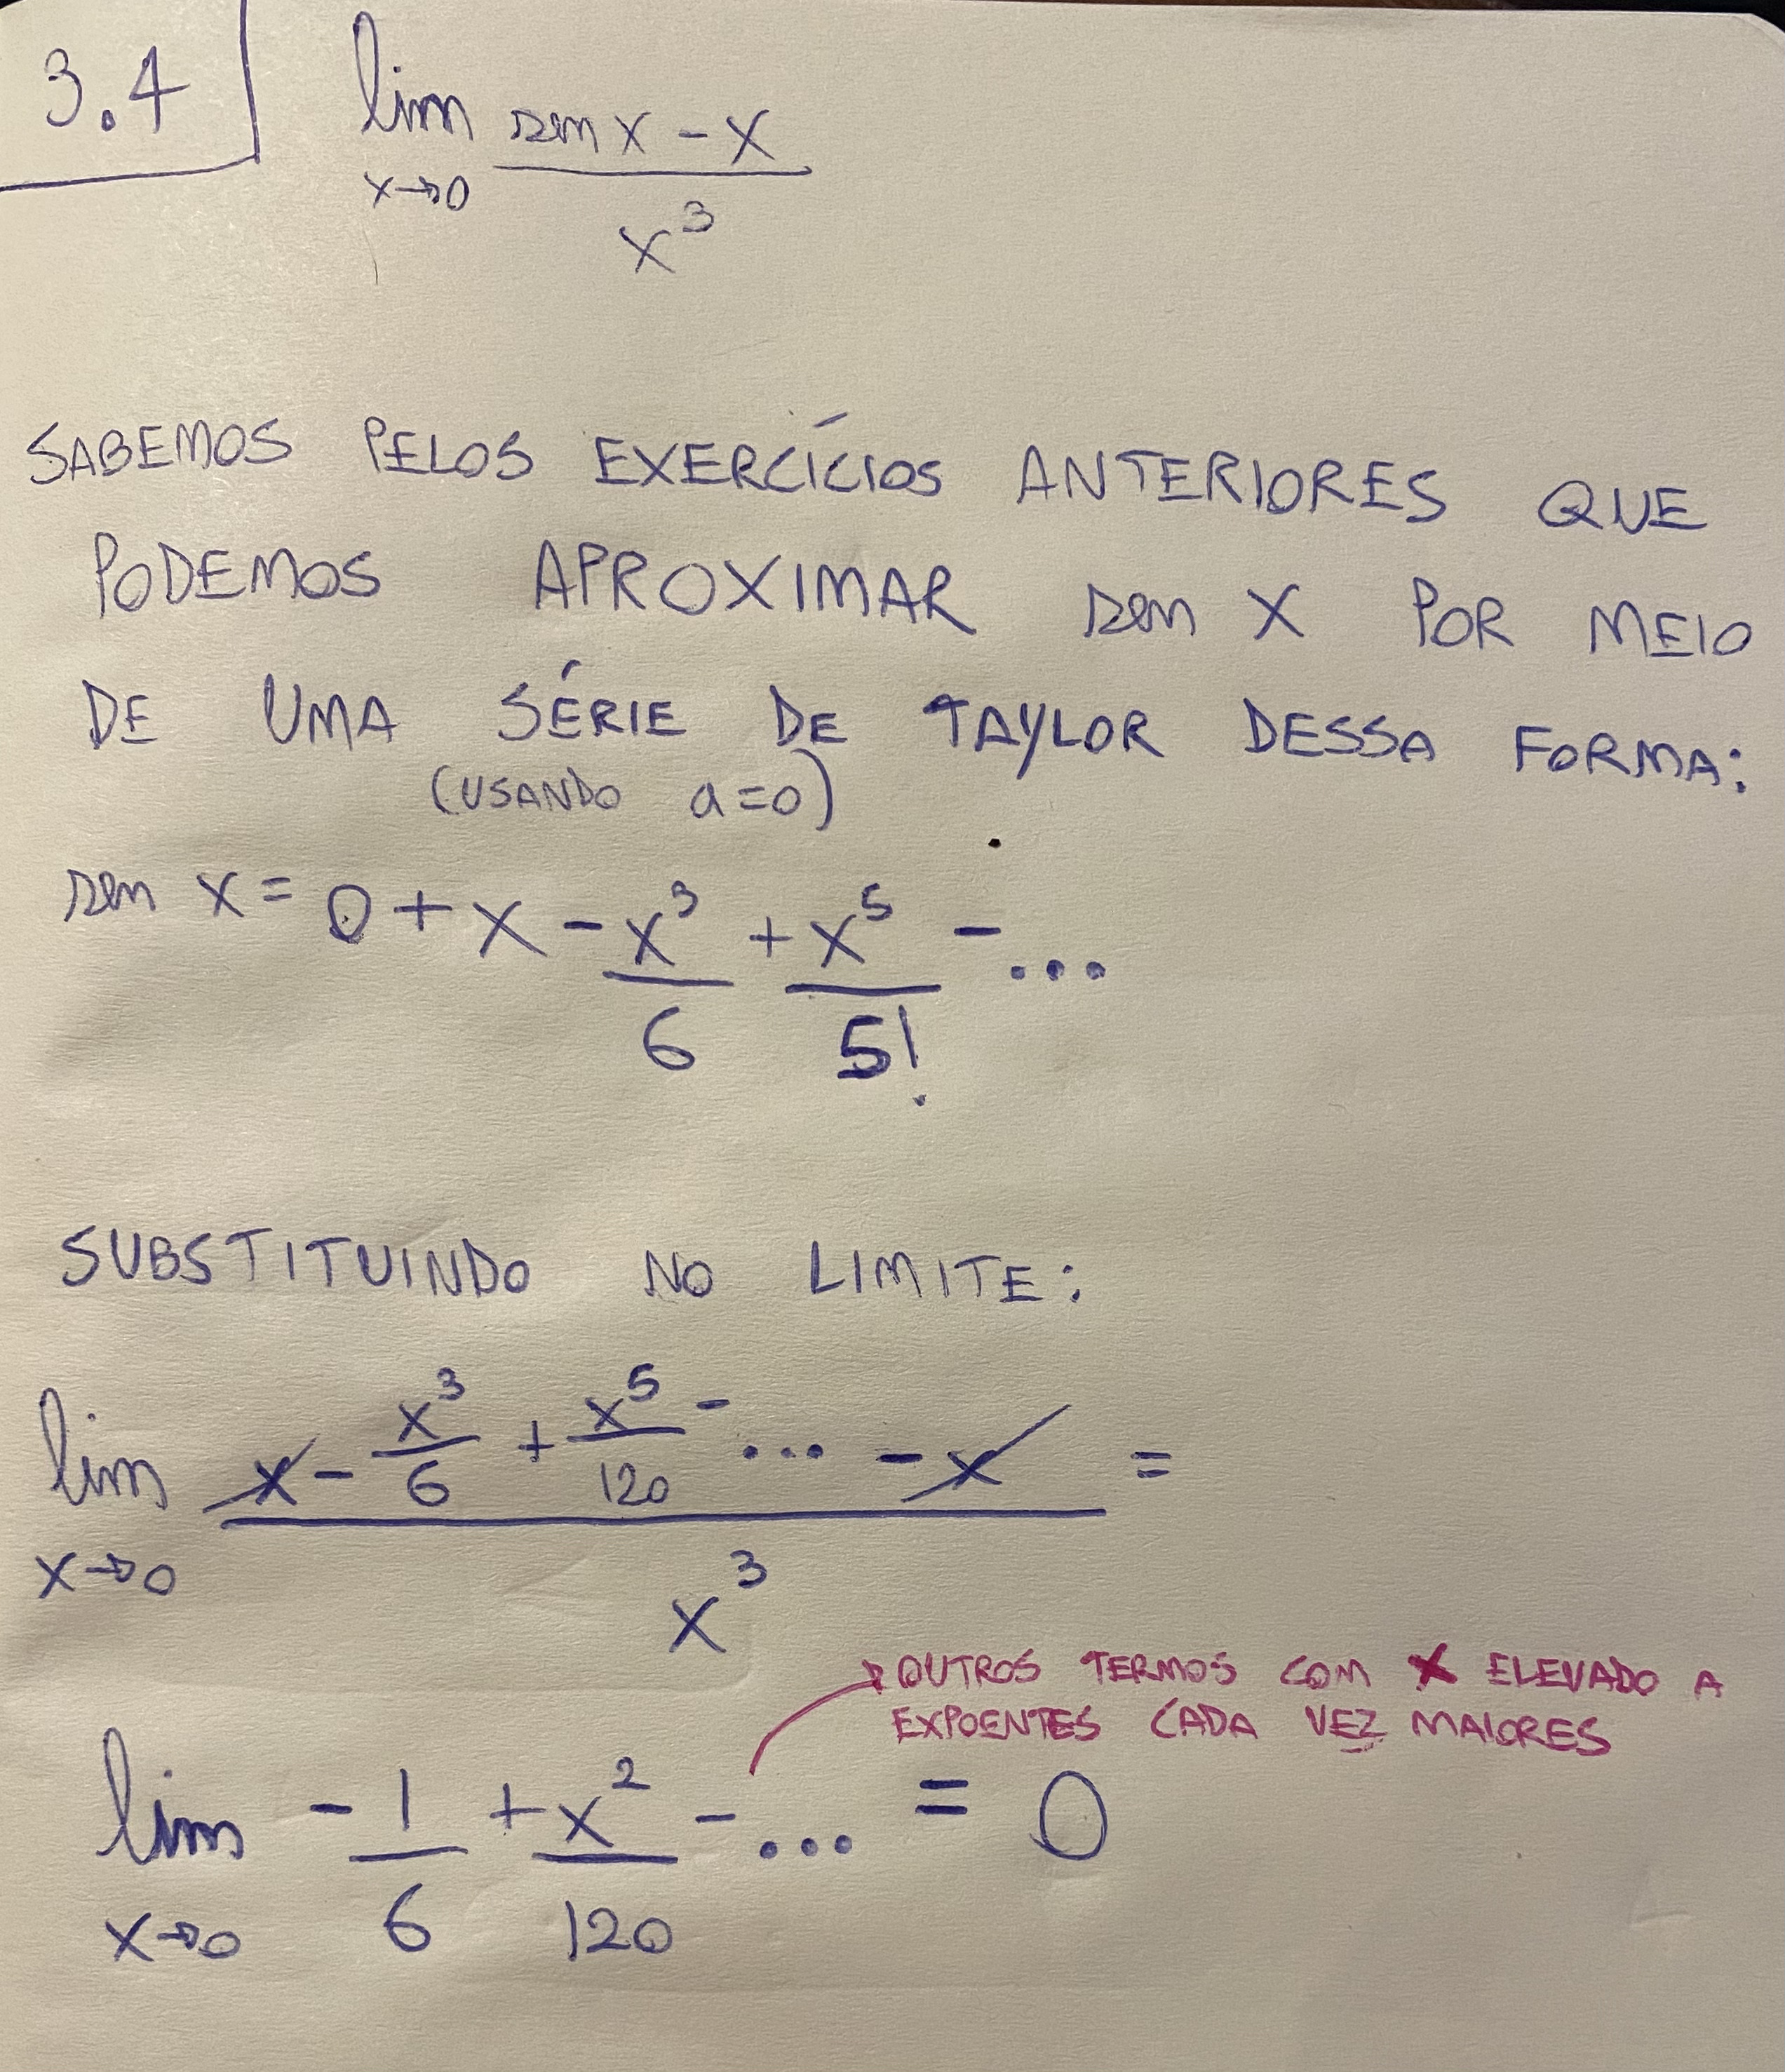 3.4
lim sen x - x
x→0 x³
SABEMOS PELOS EXERCÍCIOS ANTERIORES QUE
PODEMOS APROXIMAR sen X POR MEIO
DE UMA SÉRIE DE TAYLOR DESSA FORMA:
(USANDO a=0)
sen x = 0 + x - x³ + x⁵ - ...
6 5!
SUBSTITUINDO NO LIMITE:
lim x - x³/6 + x⁵/120 - ... - x =
x→0 x³
OUTROS TERMOS COM X ELEVADO A
EXPOENTES CADA VEZ MAIORES
lim - 1 + x² - ... = 0
x→0 6 120